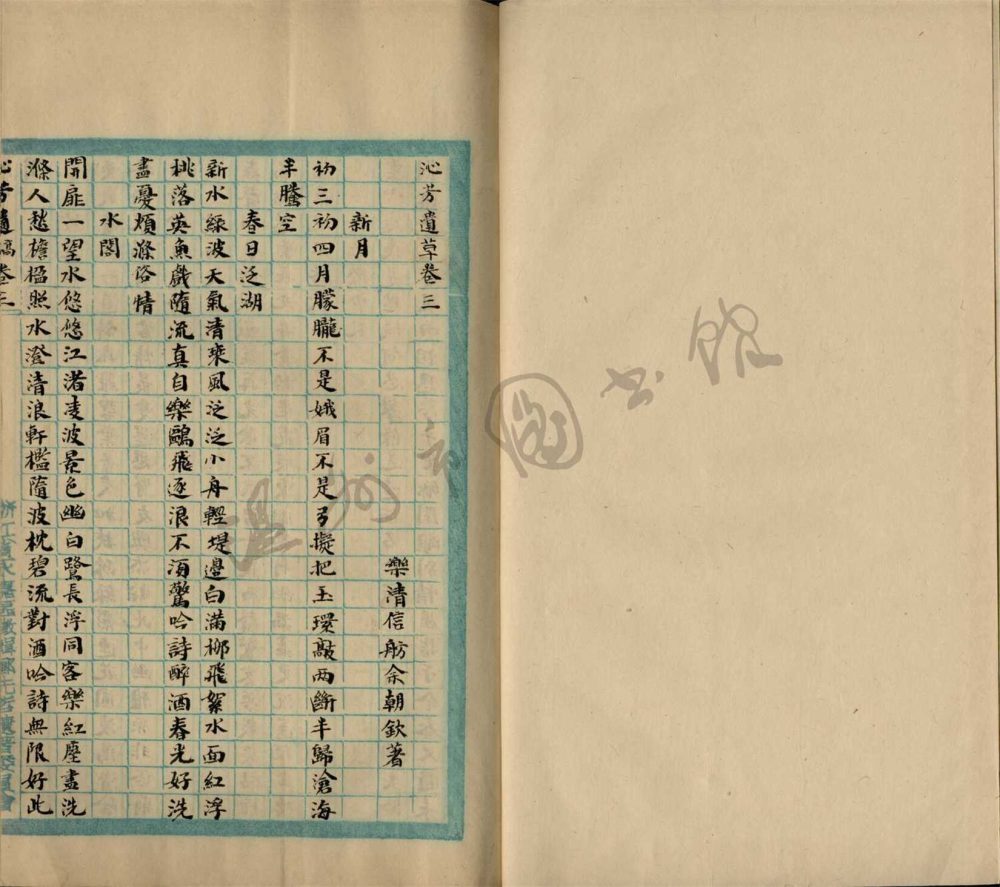 沁芳遺草卷三
樂清信舫余朝欽著
新月
初三初四月朦朧不是娥眉不是弓擬把玉環敲两斷半歸滄海
半騰空
春日泛湖
新水綠波天氣清乘風泛泛小舟輕堤邊白滿柳飛絮水面紅浮
桃落英魚戲隨流真自樂鷗飛逐浪不須驚吟詩醉酒春光好洗
盡憂煩滌俗情
水閣
開扉一望水悠悠江渚凌波景色幽白鷺長浮同客樂紅塵盡洗
滌人愁檐楹照水澄清浪軒檻隨波枕碧流對酒吟詩無限好此
沁芳遺稿卷三
溫州市圖書館